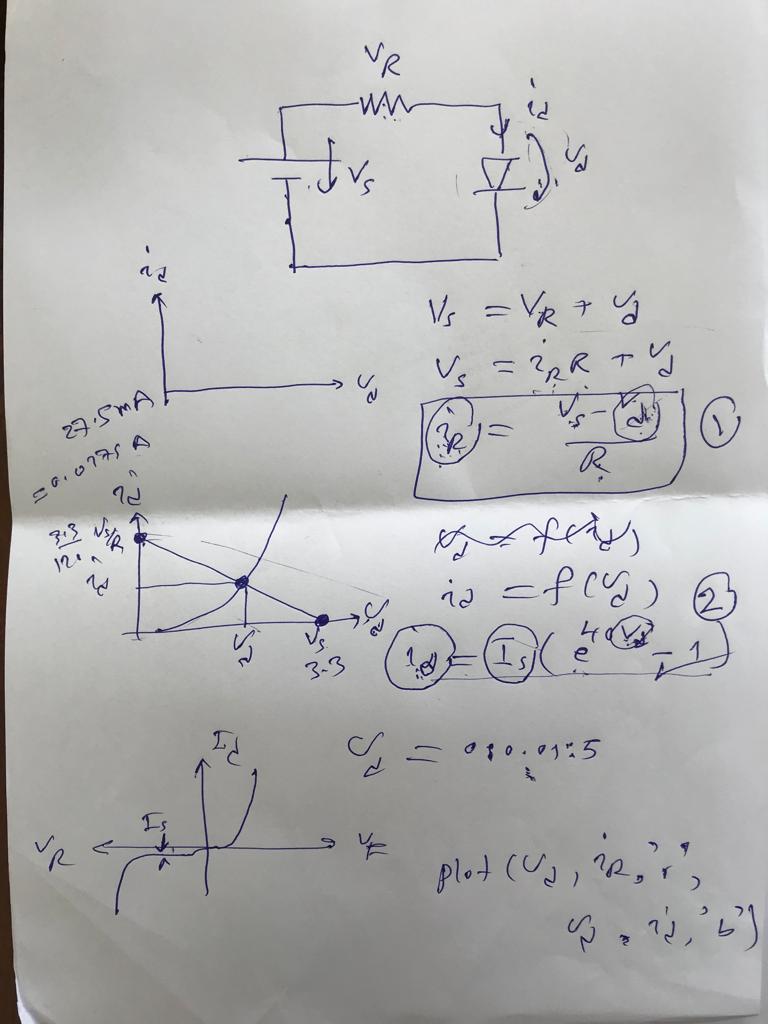 V_R
i_d
V_s
v_d
i_d
v_d
V_s = V_R + v_d
V_s = i_R R + v_d
i_R = V_s - v_d / R
1
27.5mA
= 0.0275 A
i_d
3.3 / 120
V_s/R
i_d
v_d
V_d
V_s
3.3
v_d = f(i_d)
i_d = f(v_d)
2
i_d = I_s (e^40 v_d - 1)
I_d
I_s
V_R
V_F
v_d = 0:0.01:5
plot(v_d, i_R, 'r',
v_d, i_d, 'b')